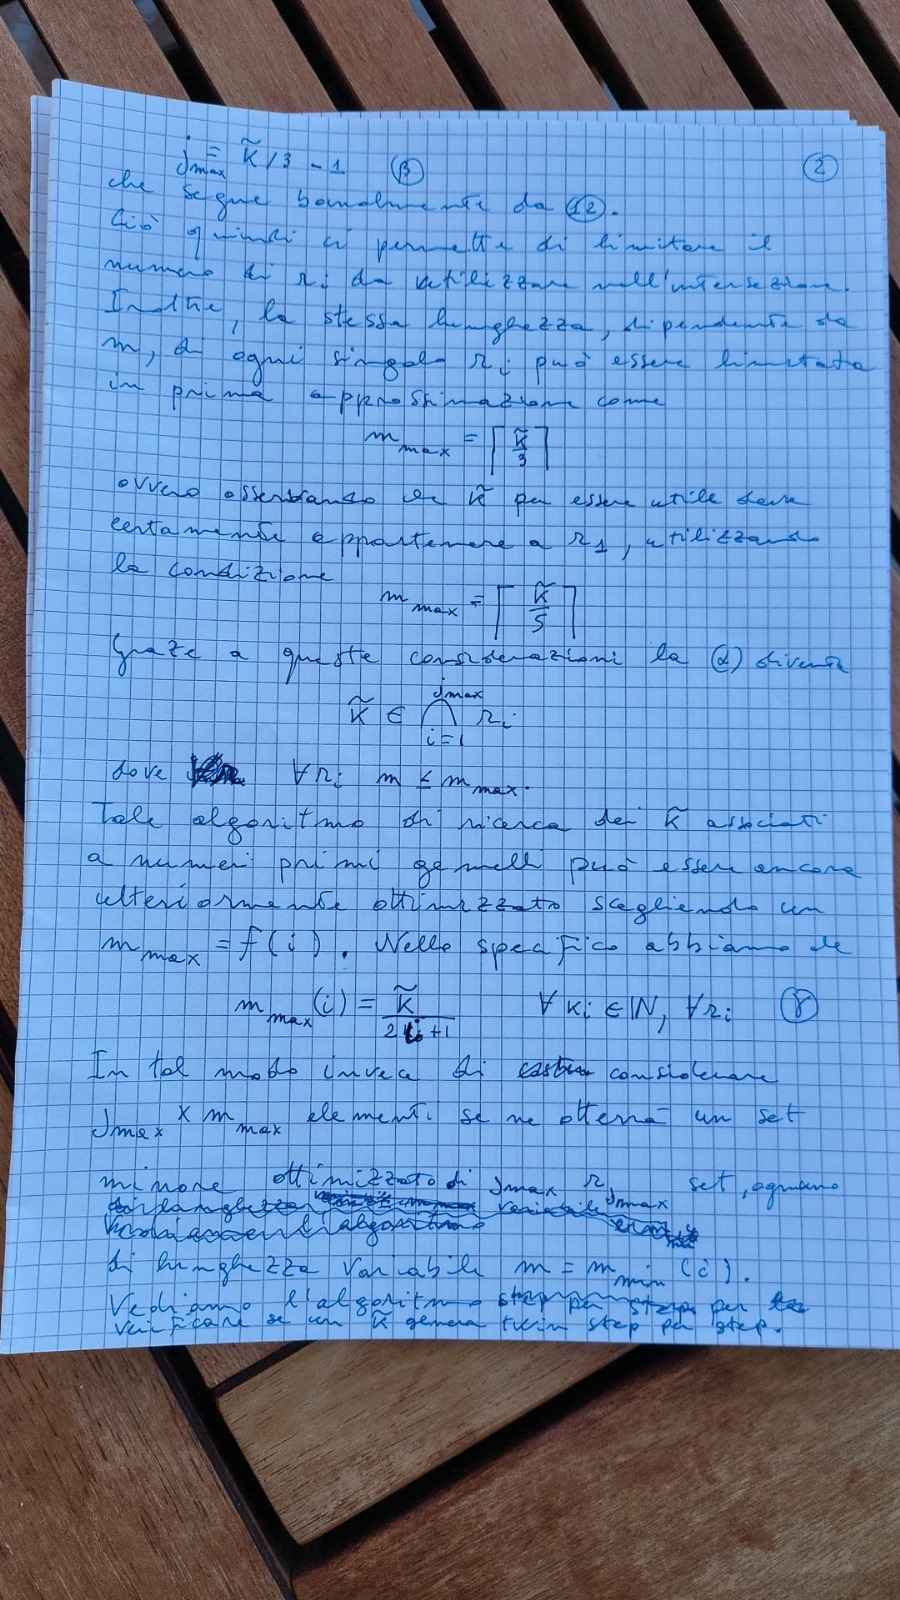 j_max = k̃/3 - 1 (β) (2)
che segue banalmente da (12).
Ciò quindi ci permette di limitare il
numero di r_i da utilizzare nell'intersezione.
Inoltre, la stessa lunghezza, dipendente da
m, di ogni singola r_i può essere limitata
in prima approssimazione come
m_max = ⌈k̃/3⌉
ovvero osservando che k̃ per essere utile deve
certamente appartenere a r_1, utilizzando
la condizione
m_max = ⌈k̃/5⌉
Graze a queste considerazioni la (α) diventa
k̃ ∈ ⋂_{i=1}^{j_max} r_i
dove ∀ r_i m ≤ m_max.
Tale algoritmo di ricerca dei k̃ associati
a numeri primi gemelli può essere ancora
ulteriormente ottimizzato scegliendo un
m_max = f(i). Nello specifico abbiamo che
m_max(i) = k̃/(2i+1) ∀ k_i ∈ ℕ, ∀ r_i (γ)
In tal modo invece di considerare
j_max × m_max elementi se ne otterrà un set
minore ottimizzato di j_max r_i set, ognuno
di lunghezza variabile m = m_min(i).
Vediamo l'algoritmo per
verificare se un k̃ genera twin step per step.